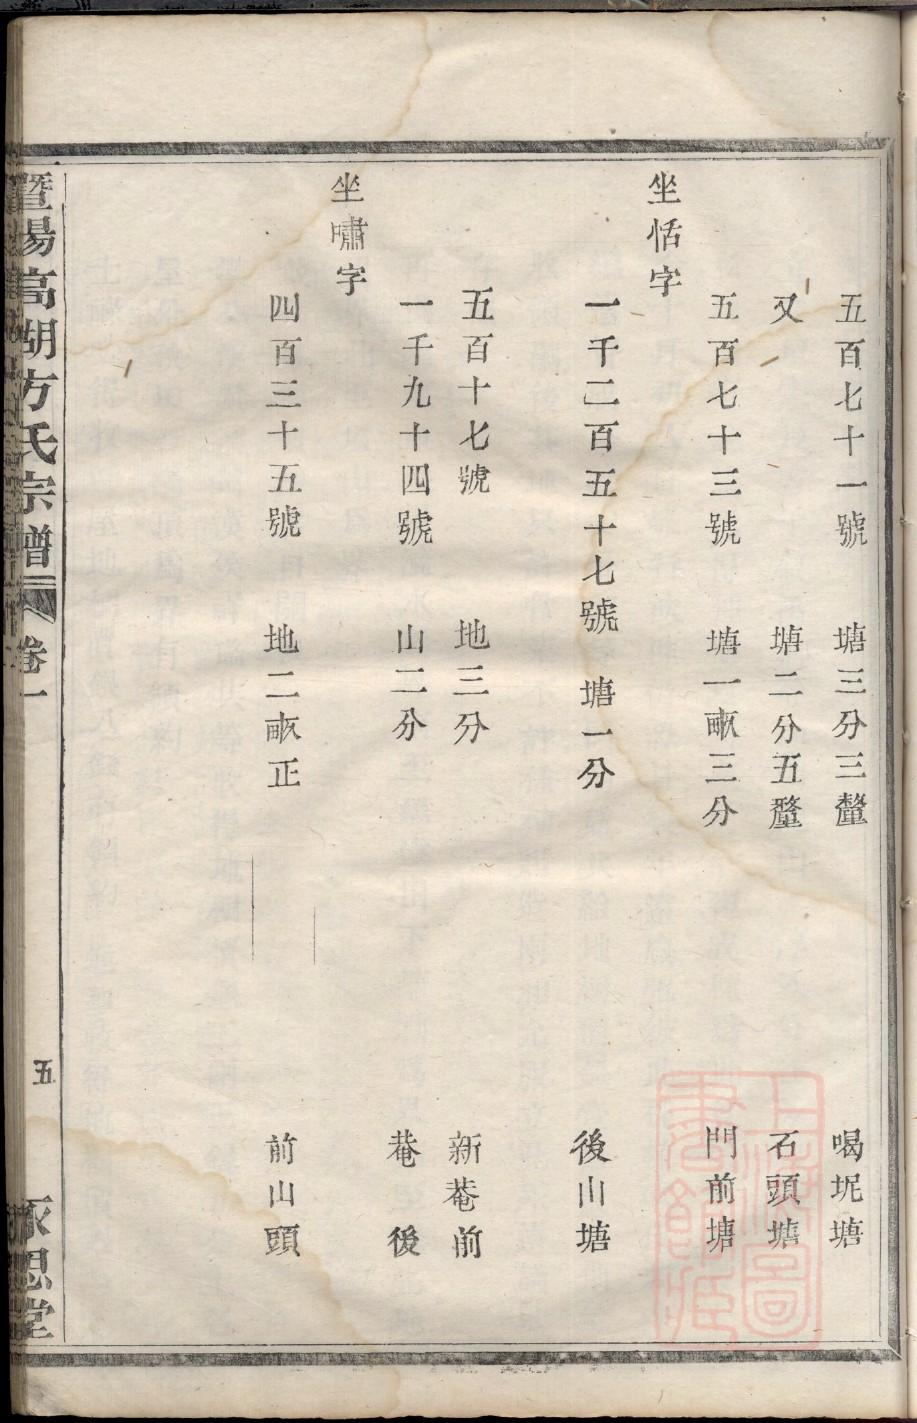 五百七十一號 塘三分三釐 喝坭塘
又 塘二分五釐 石頭塘
五百七十三號 塘一畝三分 門前塘
坐恬字
一千二百五十七號 塘一分 後山塘
五百十七號 地三分 新菴前
一千九十四號 山二分 菴後
坐嘯字
四百三十五號 地二畝正 前山頭
暨陽高湖方氏宗譜 卷一 五 永思堂
上海圖書館藏